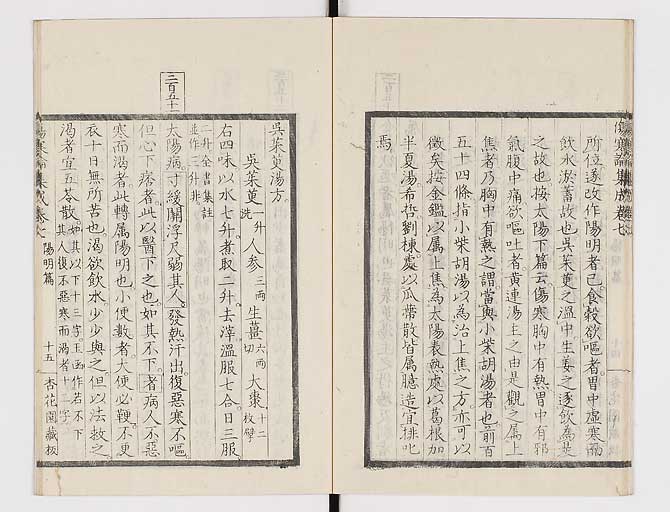 傷寒論集成卷七
所位遂改作陽明者已食穀欲嘔者胃中虛寒而
飲水淤蓄故也吳茱萸之溫中生姜之逐飲為是
之故也按太陽下篇云傷寒胸中有熱胃中有邪
氣腹中痛欲嘔吐者黃連湯主之由是觀之属上
焦者乃胸中有熱之謂當與小柴胡湯者也前百
五十四條指小柴胡湯以為治上焦之方亦可以
徵矣按金鑑以属上焦為太陽表熱處以葛根加
半夏湯希哲劉棟處以瓜蔕散皆属臆造宜排叱
焉
吳茱萸湯方
吳茱萸一升洗 人参三両 生薑六両切 大棗十二枚擘
右四味以水七升煮取二升去滓溫服七合日三服
二升全書集註並作三升非
三百五十二
太陽病寸緩關浮尺弱其人發熱汗出復惡寒不嘔
但心下痞者此以醫下之也如其不下者病人不惡
寒而渴者此轉属陽明也小便數者大便必鞕不更
衣十日無所苦也渴欲飲水少少與之但以法救之
渴者宜五苓散如其以下十三字玉函作若不下其人復不惡寒而渴者十二字
傷寒論集成卷七 陽明篇 十五 杏花園藏板